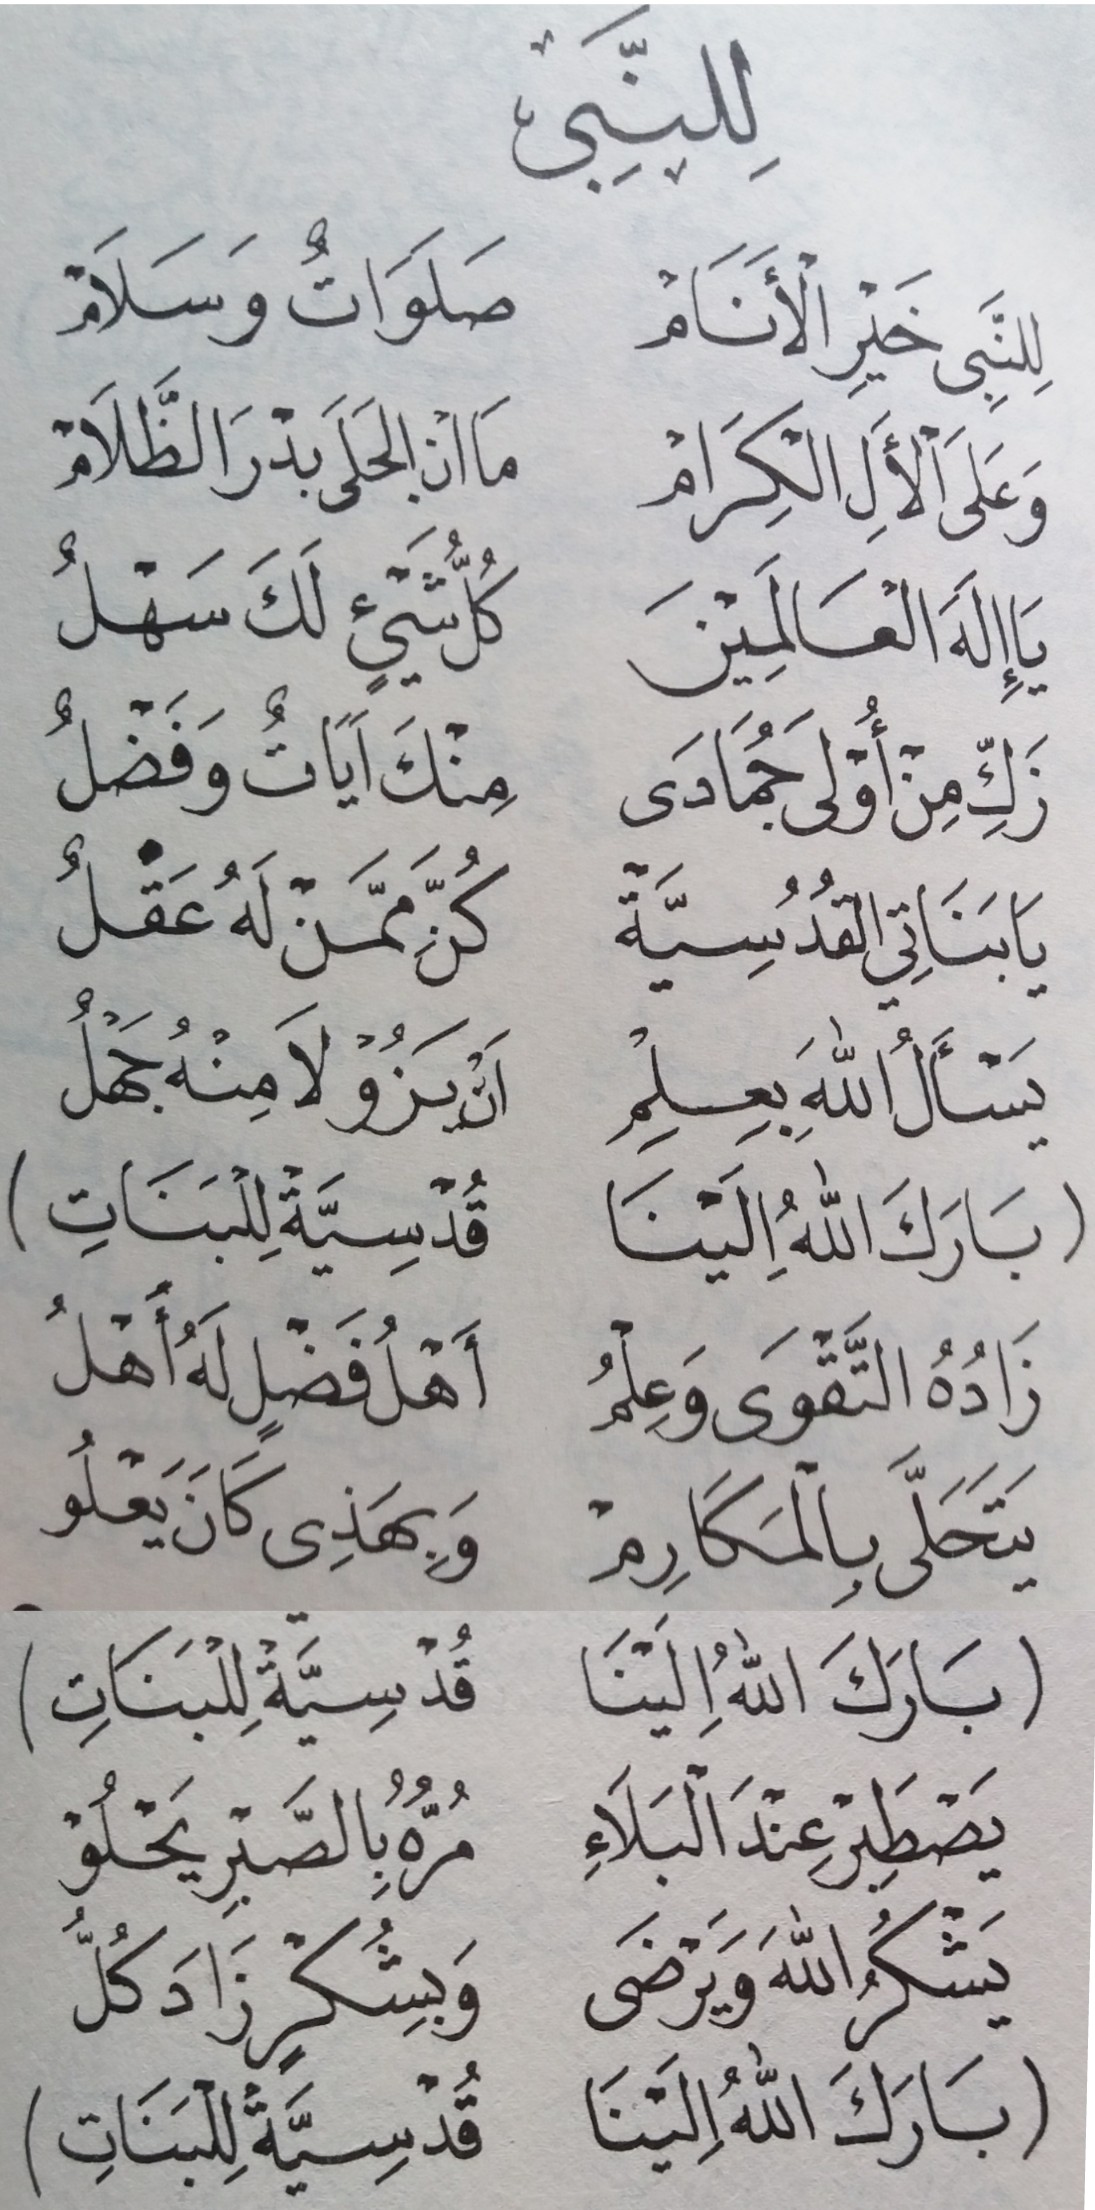 لِلنَّبِيْ
لِلنَّبِي خَيْرِ الْأَنَامْ صَلَوَاتٌ وَسَلَامْ
وَعَلَى الْأَلِ الْكِرَامْ مَا انْجَلَى بَدْرَ الظَّلَامْ
يَا إِلَهَ الْعَالَمِيْنَ كُلُّ شَيْءٍ لَكَ سَهْلٌ
زَكِّ مِنْ أُوْلَى جُمَادَى مِنْكَ آيَاتٌ وَفَضْلٌ
يَا بَنَاتِي الْقُدُسِيَّةْ كُنَّ مِمَّنْ لَهُ عَقْلٌ
يَسْأَلُ اللهَ بِعِلِمِْ اَنْ يَزُوْلَا مِنْهُ جَهْلٌ
( بَارَكَ اللهُ اِلَيْنَا قُدْسِيَّةْ لِلْبَنَاتِ )
زَادُهُ التَّقْوَى وَعِلْمُ أَهْلُ فَضْلٍ لَهُ أَهْلُ
يَتَحَلَّى بِالْمَكَارِمْ وَبِهَذِى كَانَ يَعْلُو
( بَارَكَ اللهُ اِلَيْنَا قُدْسِيَّةْ لِلْبَنَاتِ )
يَصْطَبِرْ عِنْدَ الْبَلَاءِ مُرُّهُ بِالصَّبْرِ يَحْلُوْ
يَشْكُرُ اللهَ وَيَرْضَى وَبِشُكْرٍ زَادَ كُلُّ
( بَارَكَ اللهُ اِلَيْنَا قُدْسِيَّةْ لِلْبَنَاتِ )